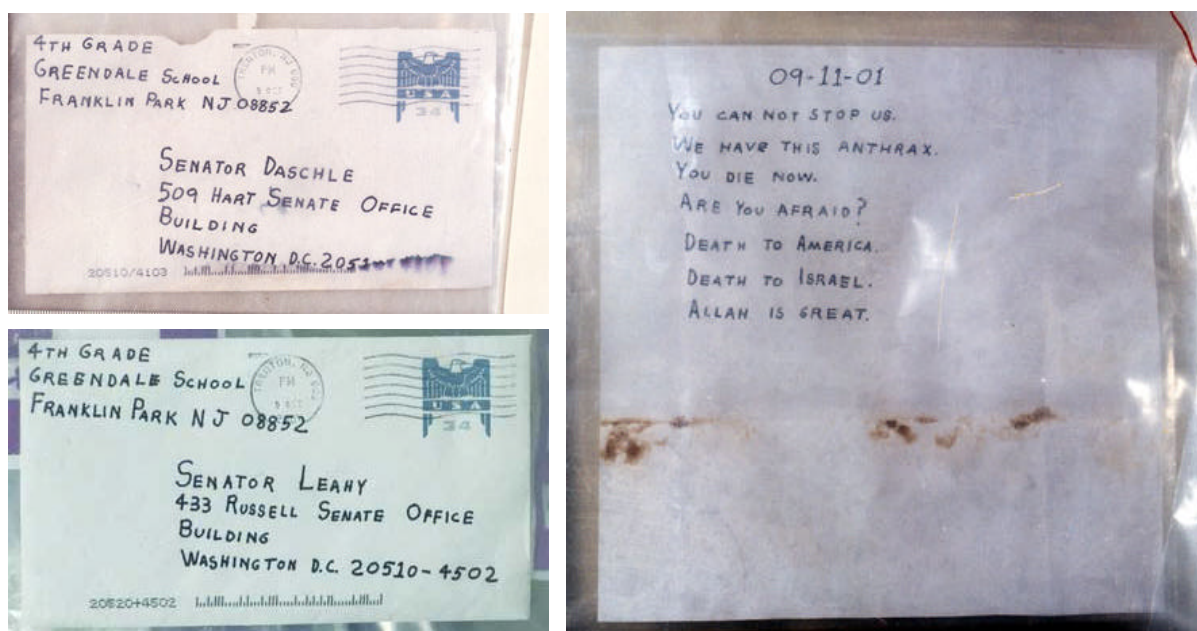 4TH GRADE
GREENDALE SCHOOL
FRANKLIN PARK NJ 08852
TRENTON, NJ
PM
USA
34
SENATOR DASCHLE
509 HART SENATE OFFICE
BUILDING
WASHINGTON D.C. 2051
20510/4103
4TH GRADE
GREENDALE SCHOOL
FRANKLIN PARK NJ 08852
TRENTON, NJ
PM
USA
34
SENATOR LEAHY
433 RUSSELL SENATE OFFICE
BUILDING
WASHINGTON D.C. 20510-4502
20520+4502
09-11-01
YOU CAN NOT STOP US.
WE HAVE THIS ANTHRAX.
YOU DIE NOW.
ARE YOU AFRAID?
DEATH TO AMERICA.
DEATH TO ISRAEL.
ALLAH IS GREAT.